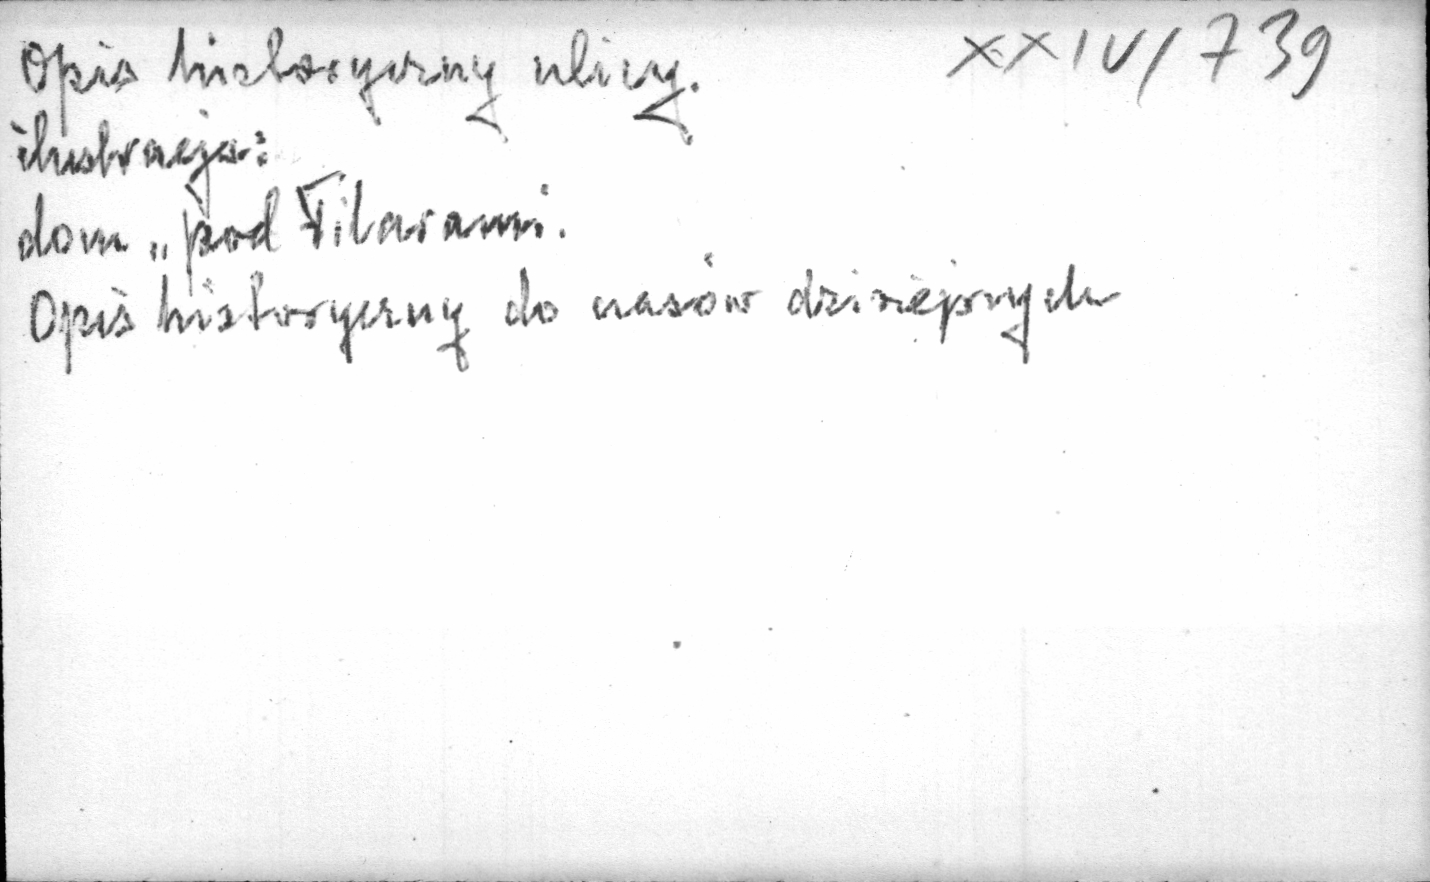 Opis historyczny ulicy. XXIV/739
ilustracja:
dom „pod Filarami.
Opis historyczny do czasów dzisiejszych